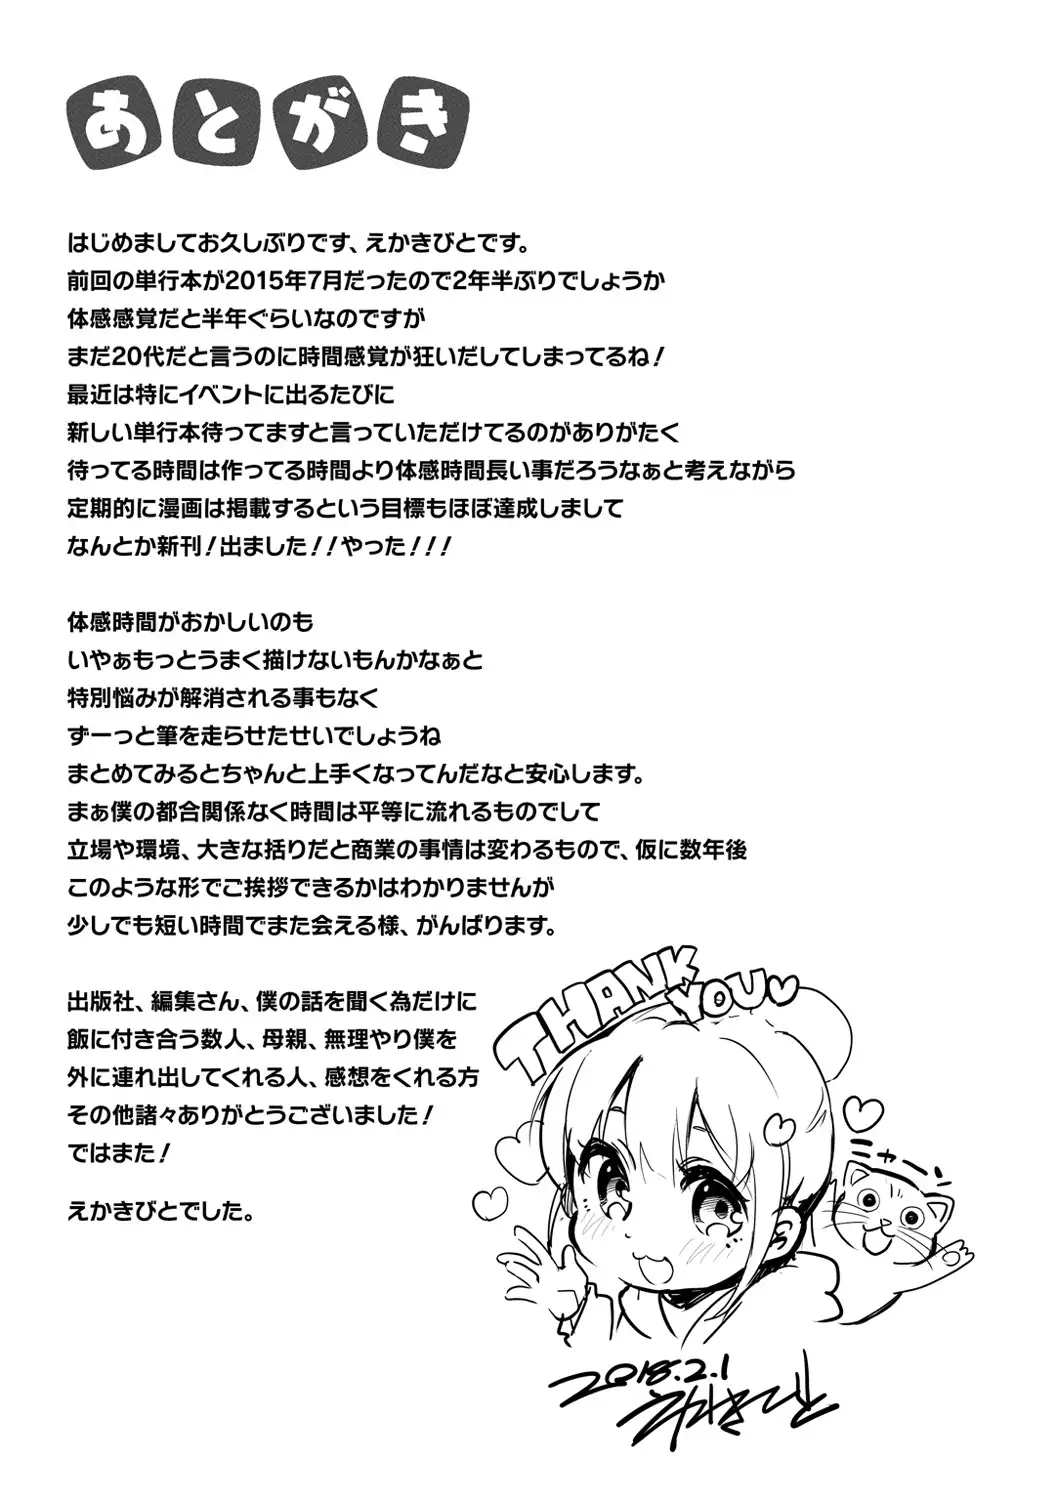 あとがき
はじめましてお久しぶりです、えかきびとです。
前回の単行本が2015年7月だったので2年半ぶりでしょうか
体感感覚だと半年ぐらいなのですが
まだ20代だと言うのに時間感覚が狂いだしてしまってるね!
最近は特にイベントに出るたびに
新しい単行本待ってますと言っていただけてるのがありがたく
待ってる時間は作ってる時間より体感時間長い事だろうなぁと考えながら
定期的に漫画は掲載するという目標もほぼ達成しまして
なんとか新刊!出ました!!やった!!!
体感時間がおかしいのも
いやぁもっとうまく描けないもんかなぁと
特別悩みが解消される事もなく
ずーっと筆を走らせたせいでしょうね
まとめてみるとちゃんと上手くなってんだなと安心します。
まぁ僕の都合関係なく時間は平等に流れるものでして
立場や環境、大きな括りだと商業の事情は変わるもので、仮に数年後
このような形でご挨拶できるかはわかりませんが
少しでも短い時間でまた会える様、がんばります。
出版社、編集さん、僕の話を聞く為だけに
飯に付き合う数人、母親、無理やり僕を
外に連れ出してくれる人、感想をくれる方
その他諸々ありがとうございました!
ではまた!
えかきびとでした。
THANK
YOU♡
ミャーン
2018.2.1
えかきびと